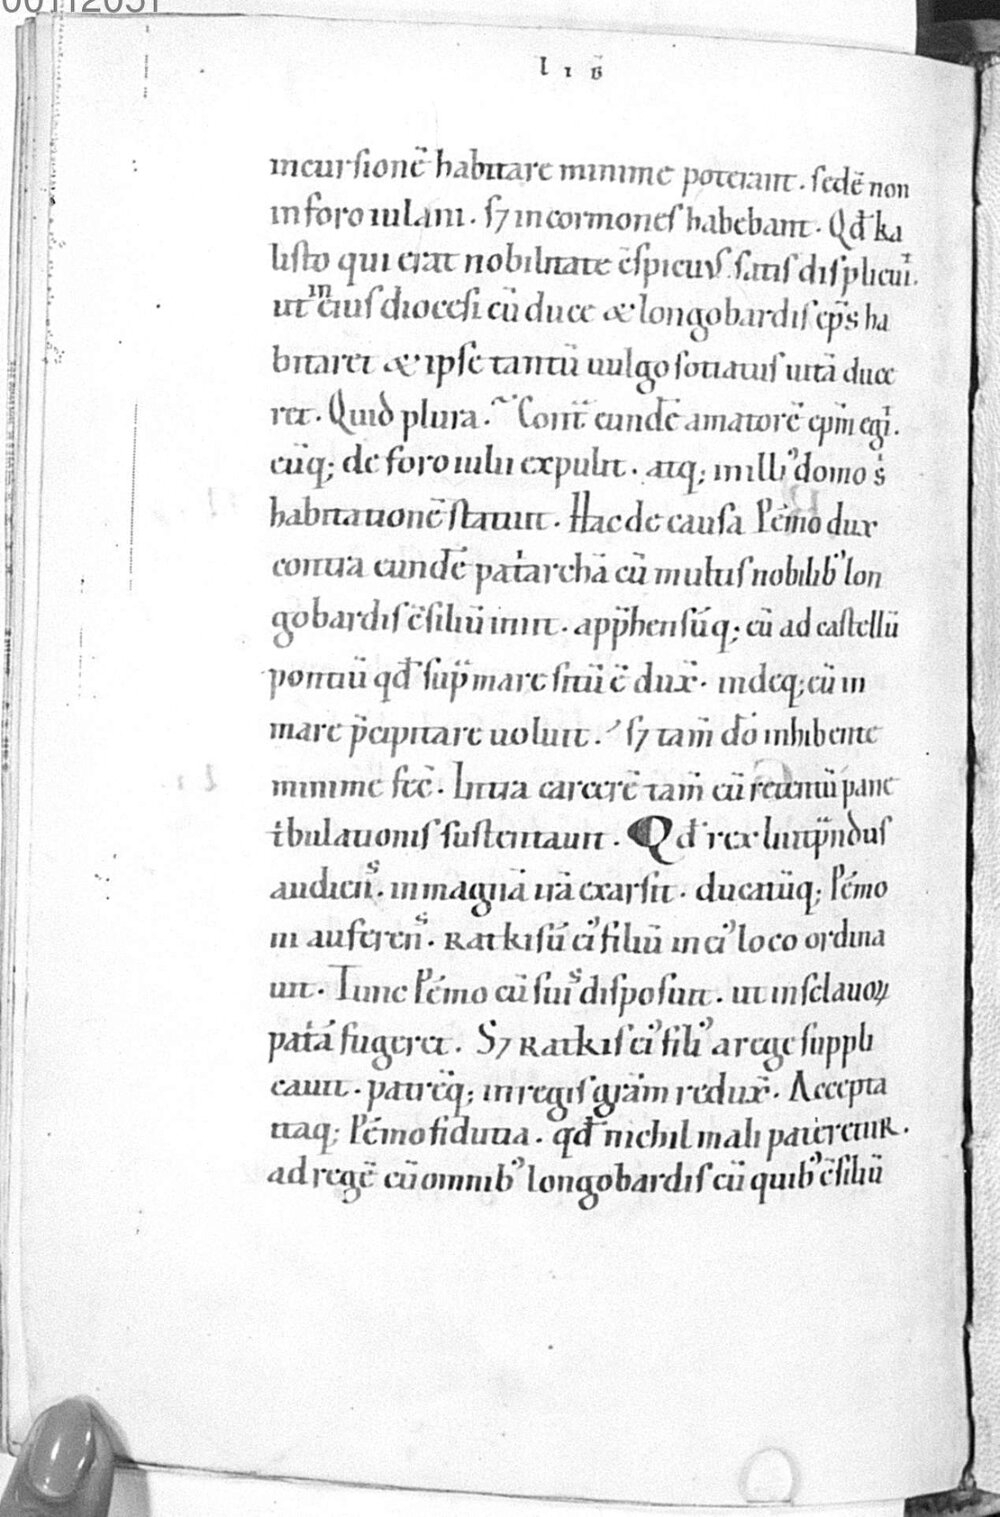 l i b̄
incursionē habitare minime poterant. sedē non
in foro iulani. sꝫ in cormones habebant. Qđ ka
listo qui erat nobilitate c̄spicuus satis displicuit.
ut in eius diocesi cū duce & longobardis ep̄s ha
bitaret & ipse tantū uulgo sotiatus uitā duce
ret. Quid plura. Cont̄ eundē amatorē ep̄m egit.
eūq; de foro iulii expulit. atq; in illiꝰ domo s
habitationē statuit. Hac de causa Pēmo dux
contra eundē pat̄archā cū multis nobilibꝰ lon
gobardis c̄siliū iniit. app̄hensūq; eū ad castellū
pontiū qđ sup̄ mare sitū ē dux̄. indeq; eū in
mare p̄cipitare uoluit. sꝫ tam̄ dō inhibente
minime fec̄. Intra carcerē tam̄ eū retentū pane
t̄bulationis sustentauit. Qđ rex liutp̄ndus
audiens. in magnā irā exarsit. ducatūq; Pēmo
ni auferens. Ratkisū eiꝰ filiū in eiꝰ loco ordina
uit. Tunc Pēmo cū suis disposuit. ut in sclauoꝝ
pat̄ā fugeret. Sꝫ Ratkis eiꝰ filiꝰ a rege suppli
cauit. patrēq; in regis grām redux̄. Accepta
itaq; Pēmo fidutia. qđ nichil mali pateretur.
ad regē cū omnibꝰ longobardis cū quibꝰ c̄siliū